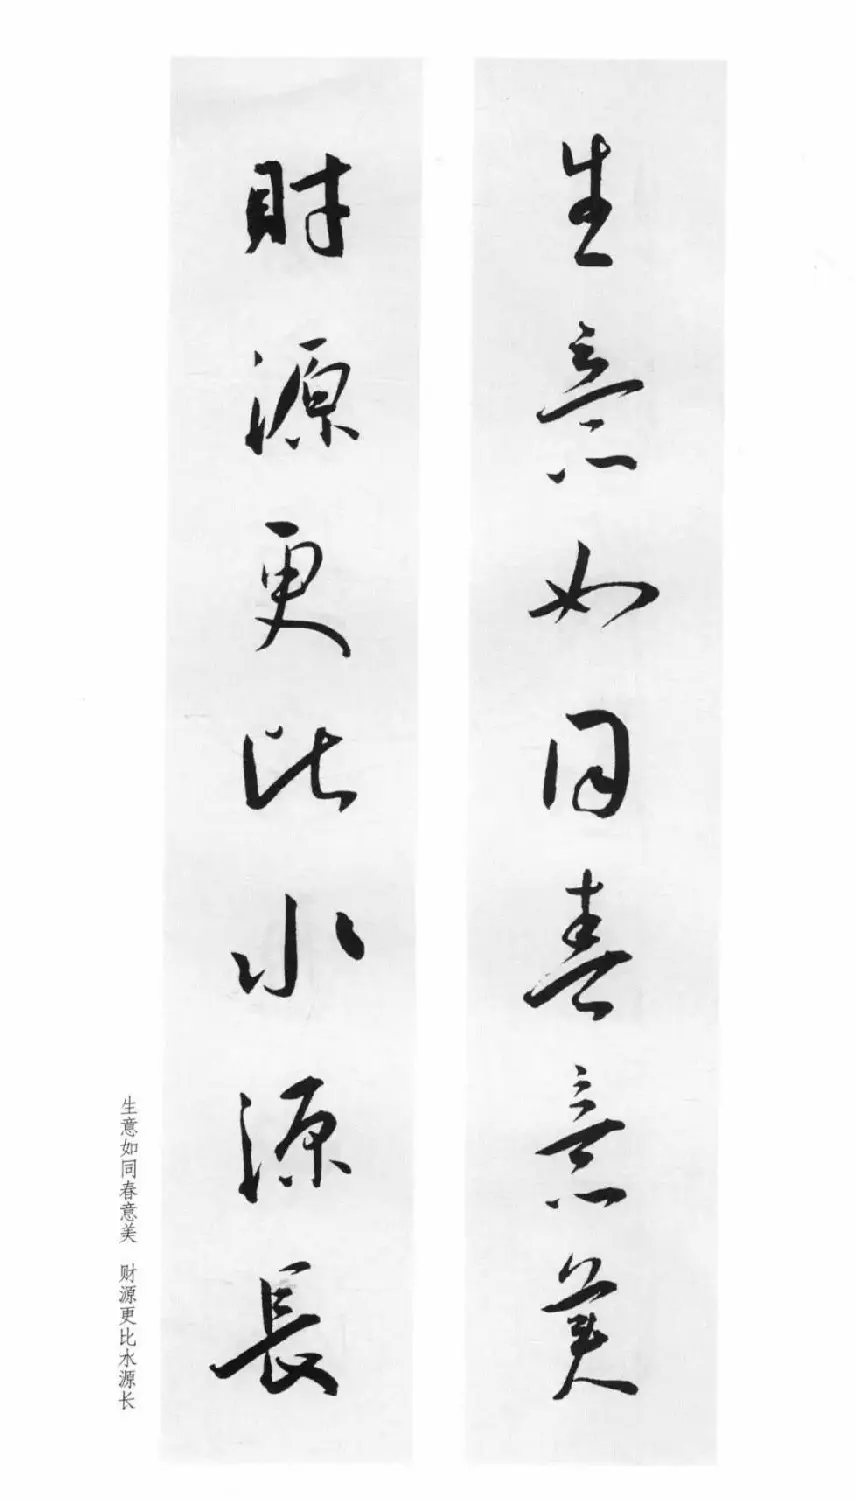 生意如同春意美
財源更比水源長
生意如同春意美 财源更比水源长